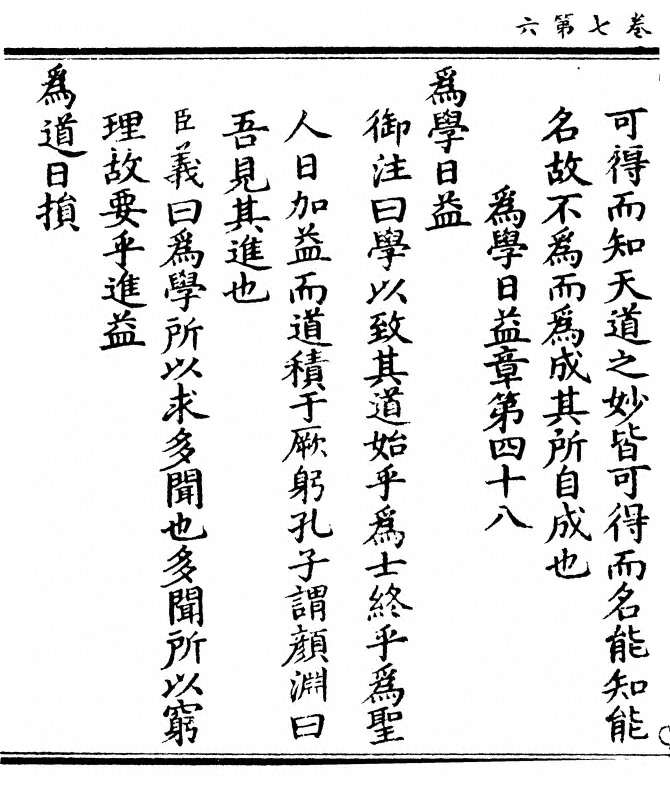 卷七第六
可得而知天道之妙皆可得而名能知能
名故不為而為成其所自成也
為學日益章第四十八
為學日益
御注曰學以致其道始乎為士終乎為聖
人日加益而道積于厥躬孔子謂顏淵曰
吾見其進也
臣義曰為學所以求多聞也多聞所以窮
理故要乎進益
為道日損